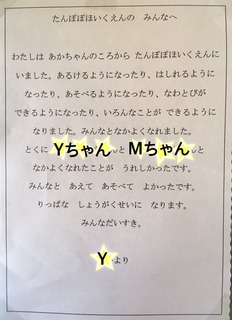 たんぽぽほいくえんの　みんなへ
わたしは　あかちゃんのころから　たんぽぽほいくえんに
いました。あるけるようになったり、はしれるように
なったり、あそべるようになったり、なわとびが
できるようになったり、いろんなことが　できるように
なりました。みんなとなかよくなれました。
とくに　Yちゃんと　Mちゃんと
なかよくなれたことが　うれしかったです。
みんなと　あえて　あそべて　よかったです。
りっぱな　しょうがくせいに　なります。
みんなだいすき。
Yより